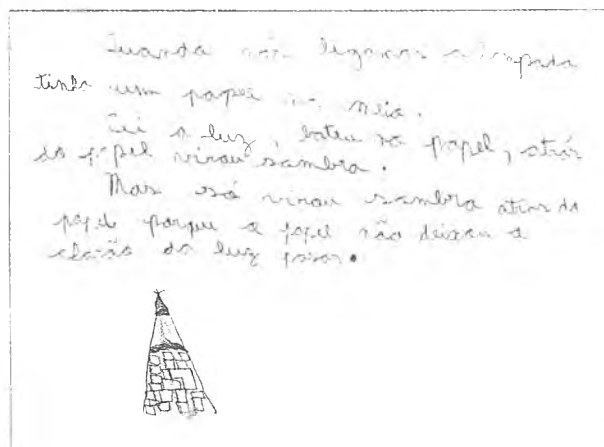 Quando nós ligamos a lampada
tinha um papel no meio.
Aí a luz, bateu no papel, atrás
do papel virou sombra.
Mas só virou sombra atras do
papel porque o papel não deixou o
clarão da luz passar.